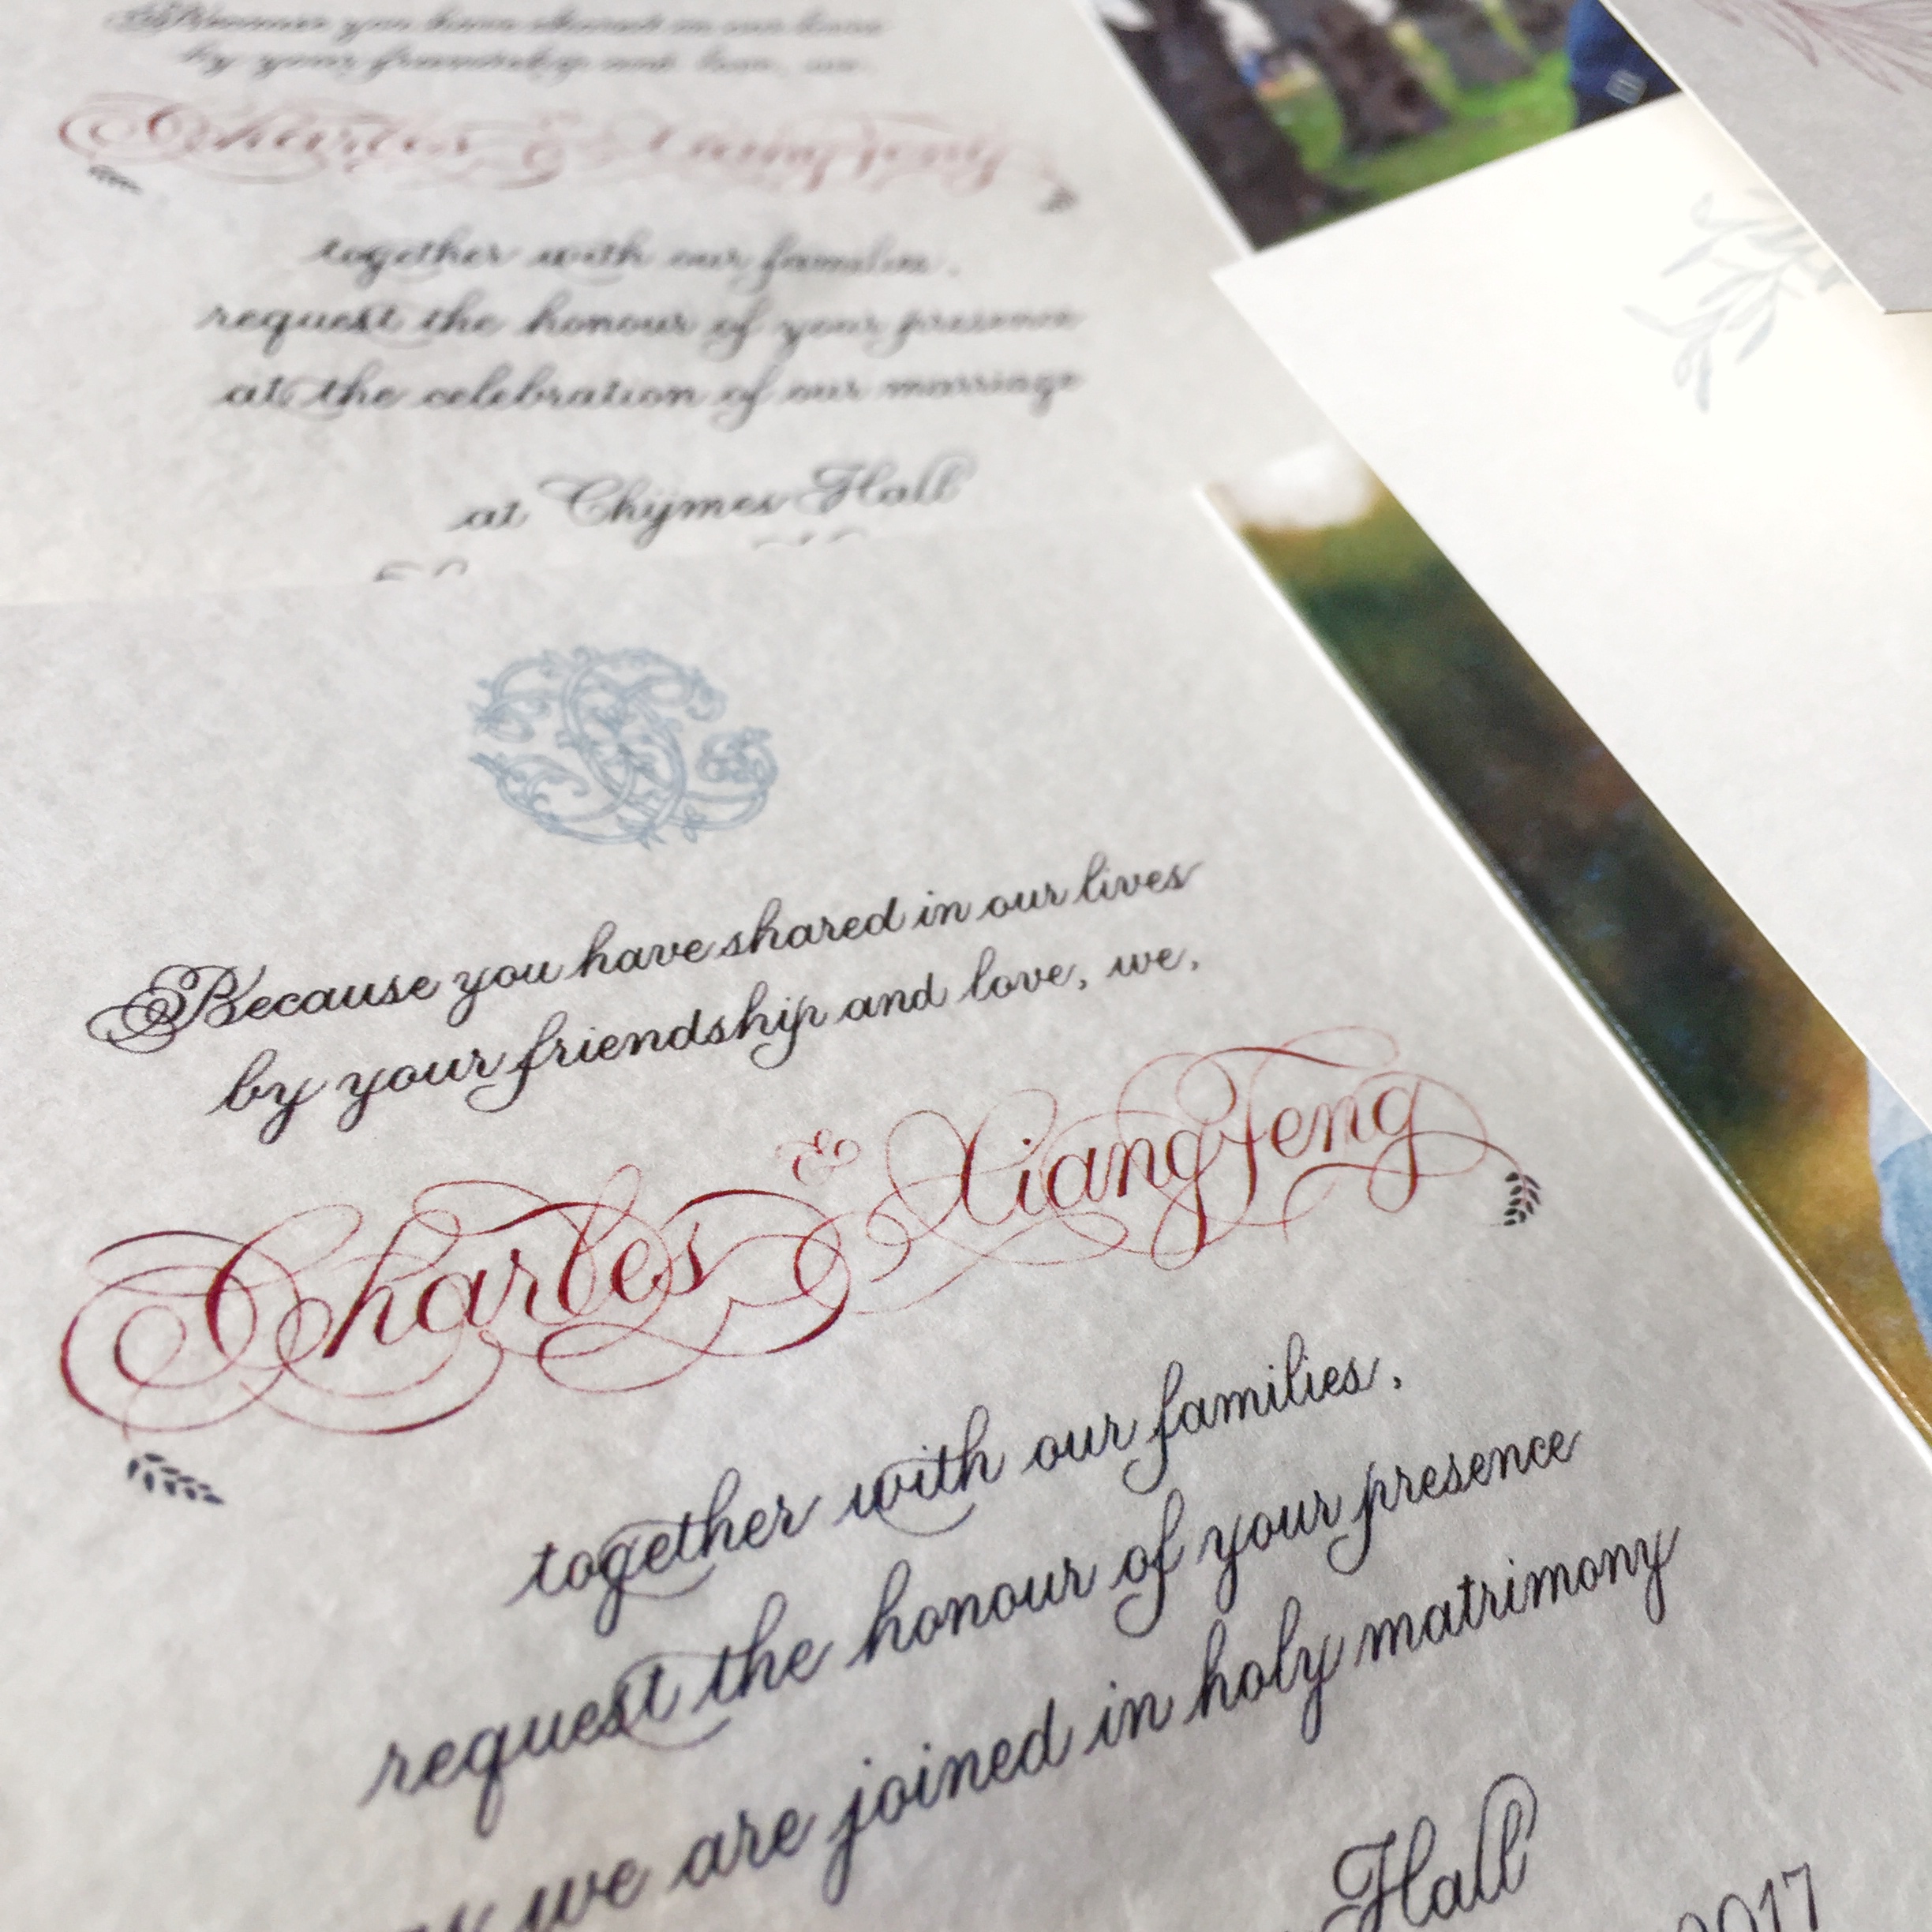 Because you have shared in our lives
by your friendship and love, we,
Charles & XiangFeng
together with our families,
request the honour of your presence
at the celebration of our marriage
at Chijmes Hall
Because you have shared in our lives
by your friendship and love, we,
Charles & XiangFeng
together with our families,
request the honour of your presence
we are joined in holy matrimony
Hall
2017